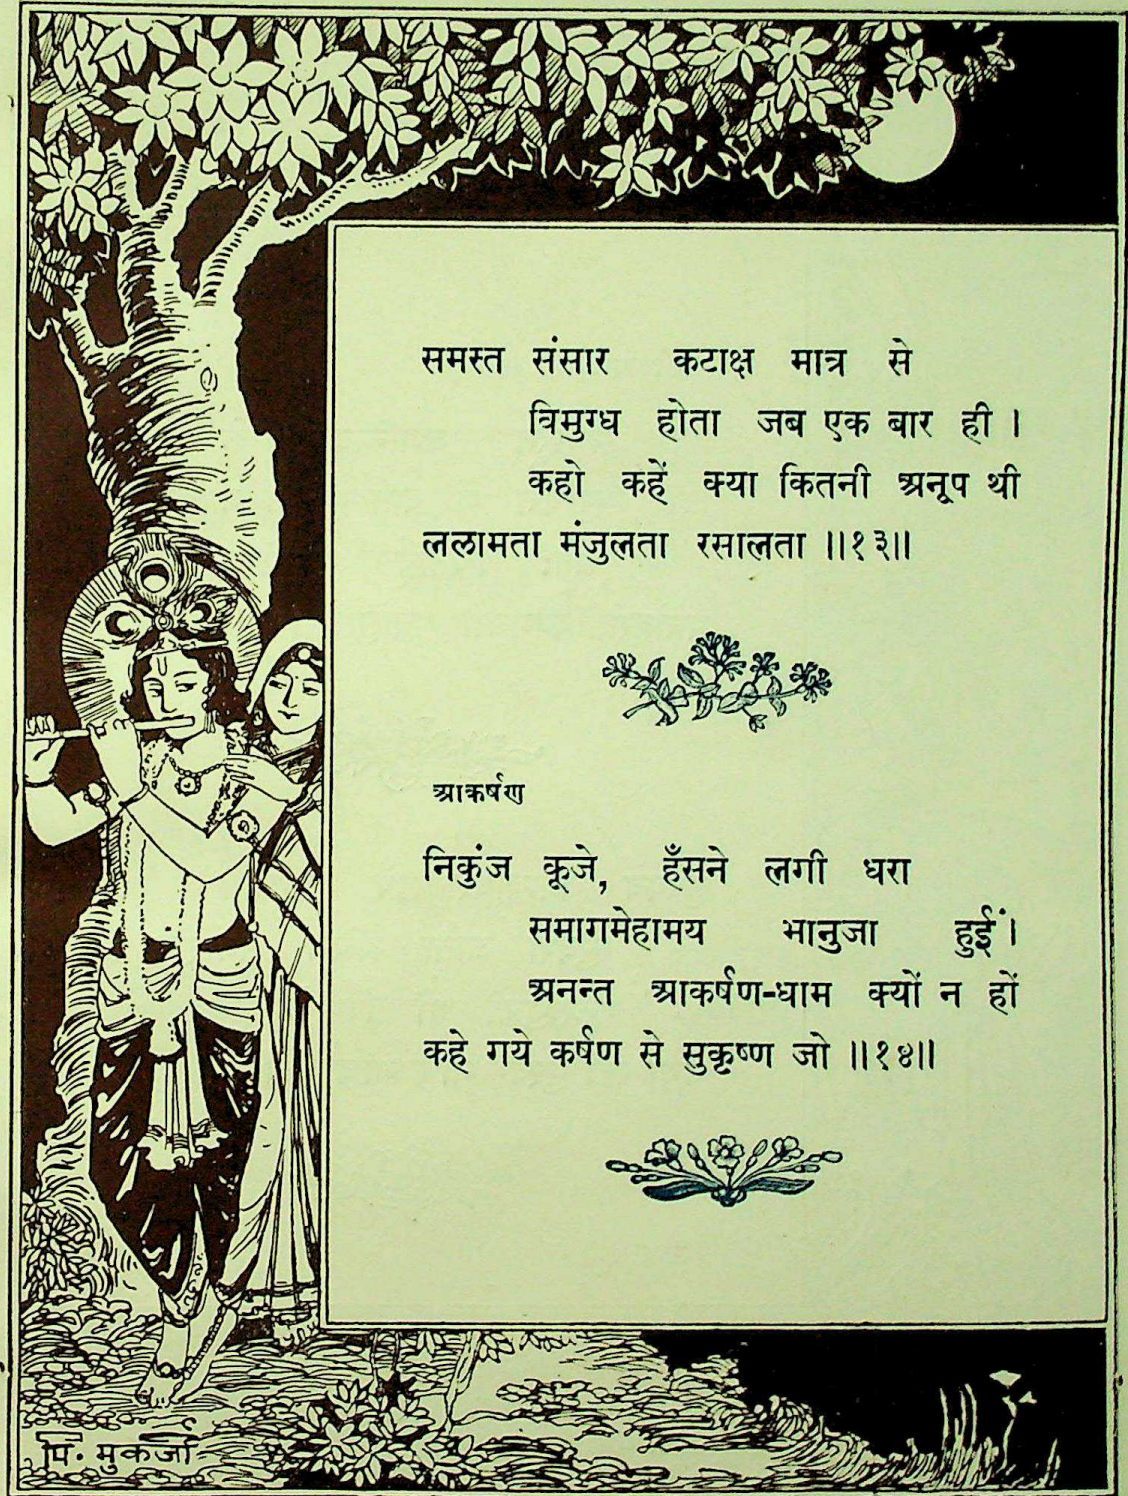 समस्त संसार कटाक्ष मात्र से
विमुग्ध होता जब एक बार ही ।
कहो कहें क्या कितनी अनूप थी
ललामता मंजुलता रसालता ॥१३॥
आकर्षण
निकुंज कूजे, हँसने लगी धरा
समागमेहामय भानुजा हुईं ।
अनन्त आकर्षण-धाम क्यों न हों
कहे गये कर्षण से सुकृष्ण जो ॥१४॥
पि. मुकर्जी